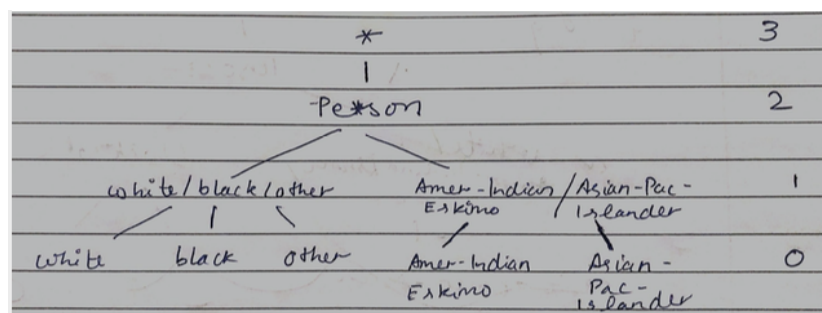 * 3
Person 2
white/black/other Amer-Indian Eskimo / Asian-Pac-Islander 1
white black other Amer-Indian Eskimo Asian-Pac-Islander 0